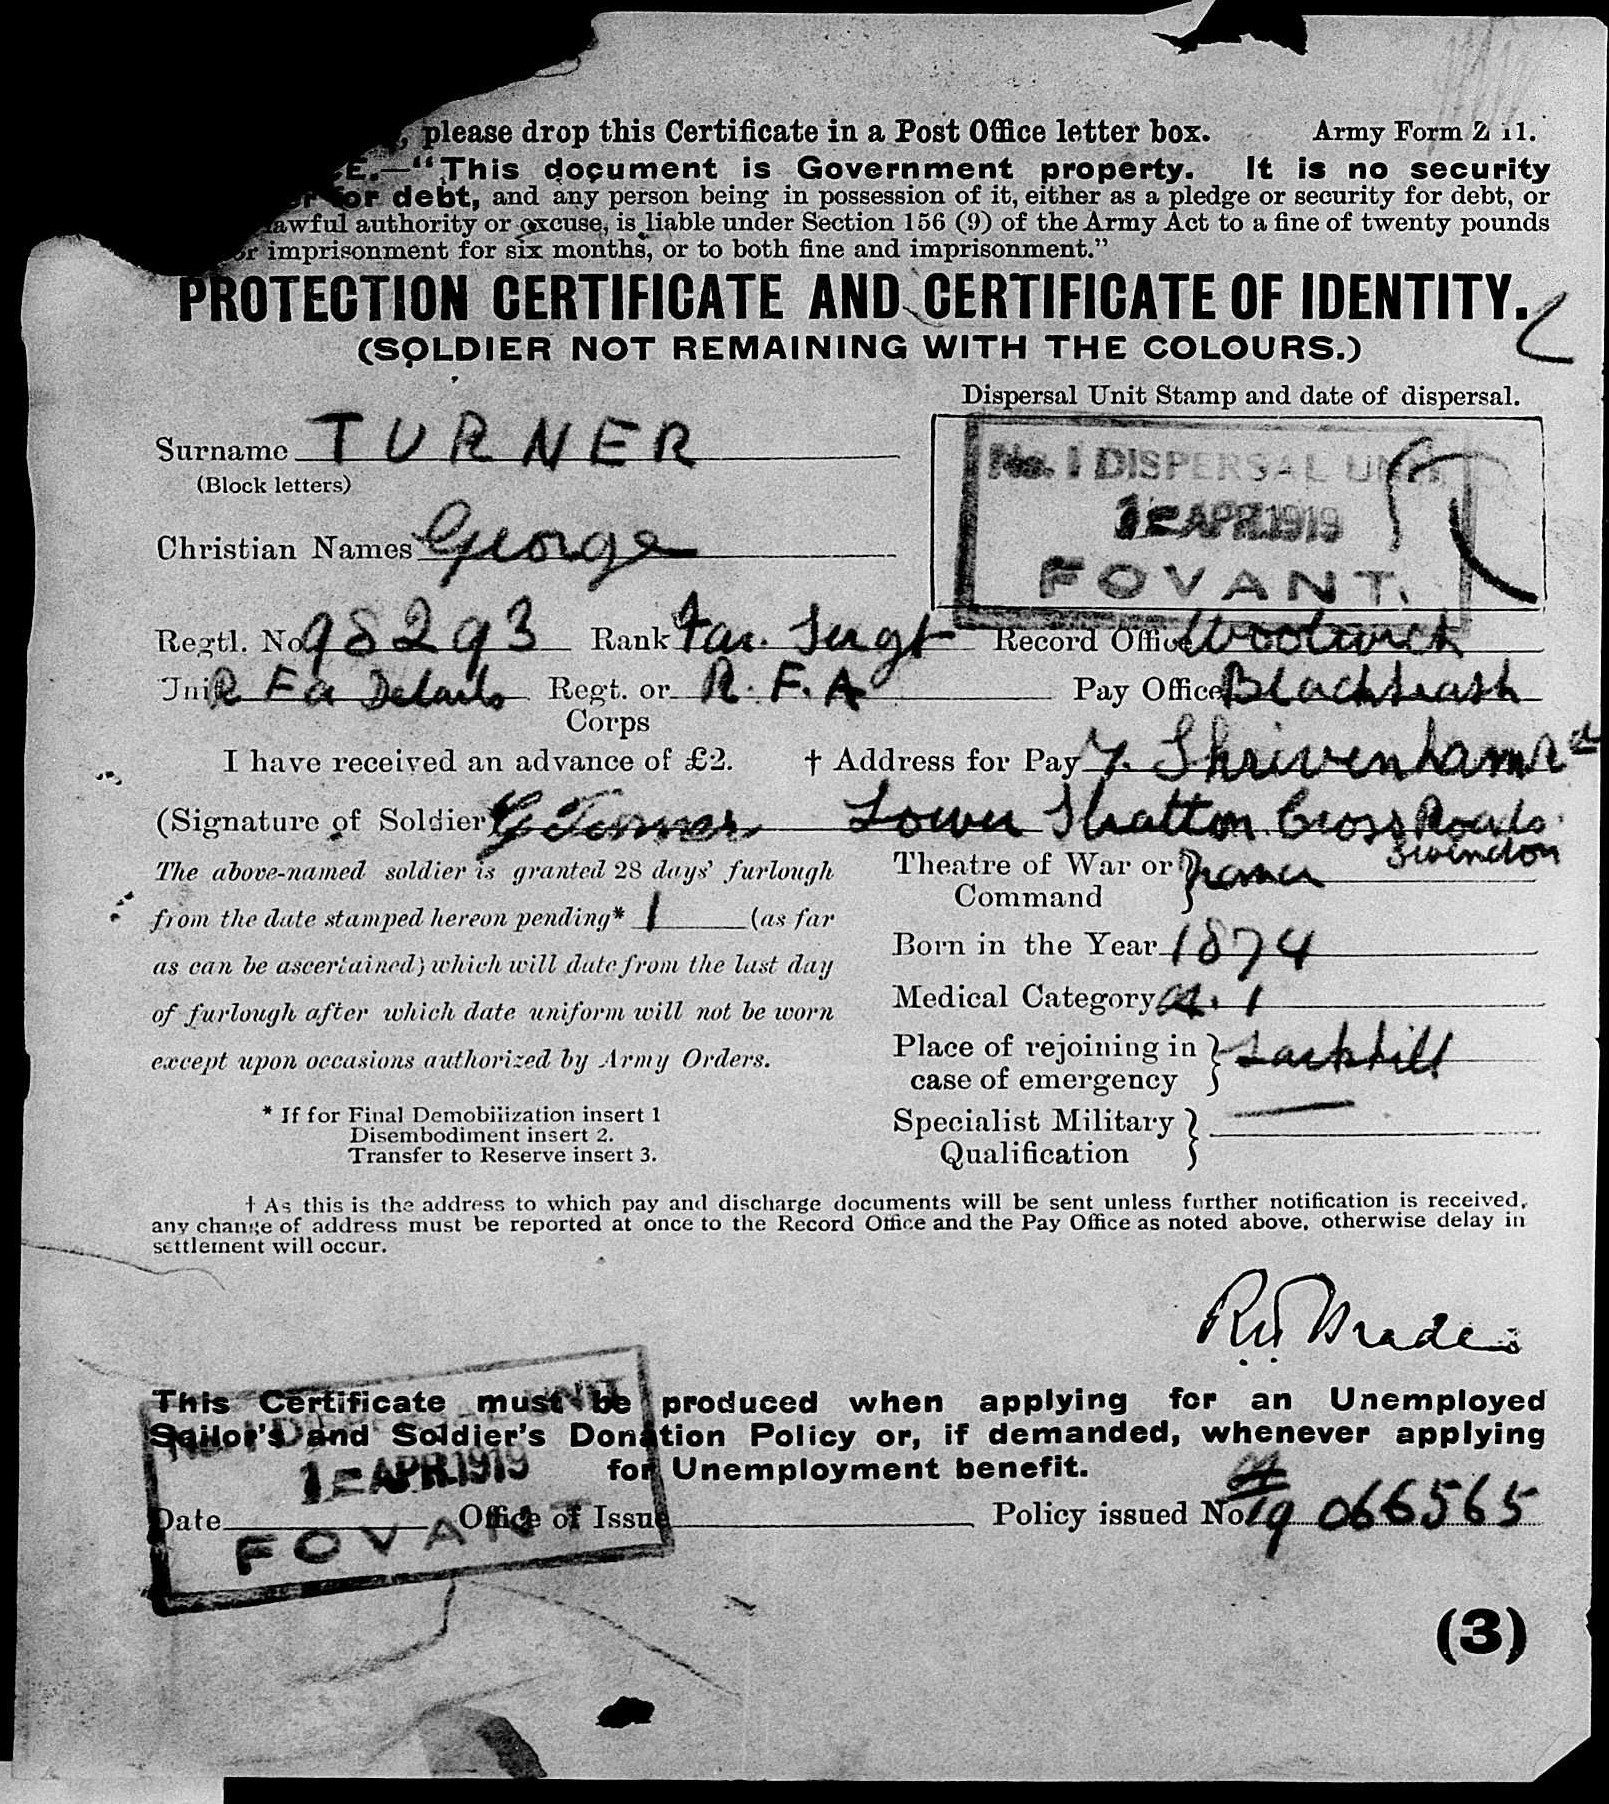 , please drop this Certificate in a Post Office letter box. Army Form Z 11.
E.—"This document is Government property. It is no security
for debt, and any person being in possession of it, either as a pledge or security for debt, or
lawful authority or excuse, is liable under Section 156 (9) of the Army Act to a fine of twenty pounds
or imprisonment for six months, or to both fine and imprisonment."
PROTECTION CERTIFICATE AND CERTIFICATE OF IDENTITY.
(SOLDIER NOT REMAINING WITH THE COLOURS.)
Dispersal Unit Stamp and date of dispersal.
Surname TURNER
(Block letters)
No. 1 DISPERSAL UNIT
1 = APR. 1919
FOVANT.
Christian Names George
Regtl. No 98293 Rank Far. Sergt Record Office Woolwich
Unit R F a Details Regt. or R. F. A Pay Office Blackheath
Corps
I have received an advance of £2. † Address for Pay 7. Shrivenham Rd
(Signature of Soldier) G Turner Lower Stratton Cross Roads.
Swindon
The above-named soldier is granted 28 days' furlough
from the date stamped hereon pending* 1 (as far
as can be ascertained) which will date from the last day
of furlough after which date uniform will not be worn
except upon occasions authorized by Army Orders.
* If for Final Demobilization insert 1
Disembodiment insert 2.
Transfer to Reserve insert 3.
Theatre of War or France
Command
Born in the Year 1874
Medical Category A. 1
Place of rejoining in Larkhill
case of emergency
Specialist Military
Qualification
† As this is the address to which pay and discharge documents will be sent unless further notification is received,
any change of address must be reported at once to the Record Office and the Pay Office as noted above, otherwise delay in
settlement will occur.
This Certificate must be produced when applying for an Unemployed
Sailor's and Soldier's Donation Policy or, if demanded, whenever applying
for Unemployment benefit.
1 = APR. 1919
Date Office of Issue Policy issued No 19 066565
FOVANT
(3)